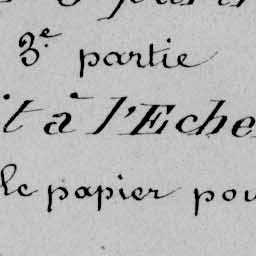 3.e partie
à l'Eche
le papier pou